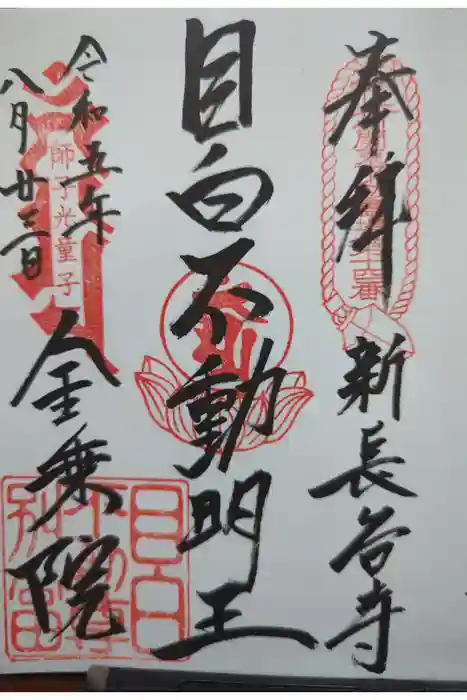 奉拝
新長谷寺
目白不動明王
令和五年
八月廿三日
師子光童子
金乗院
目白
不動尊
別當